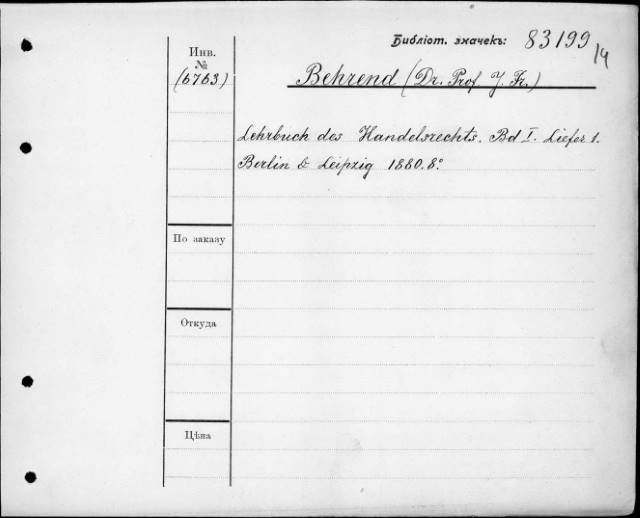 Библіот. значекъ: 83199/4
Инв.
№
(6763)
Behrend (Dr. Prof J. Fr.)
Lehrbuch des Handelsrechts. Bd I. Liefer 1.
Berlin & Leipzig 1880. 8º
По заказу
Откуда
Цѣна